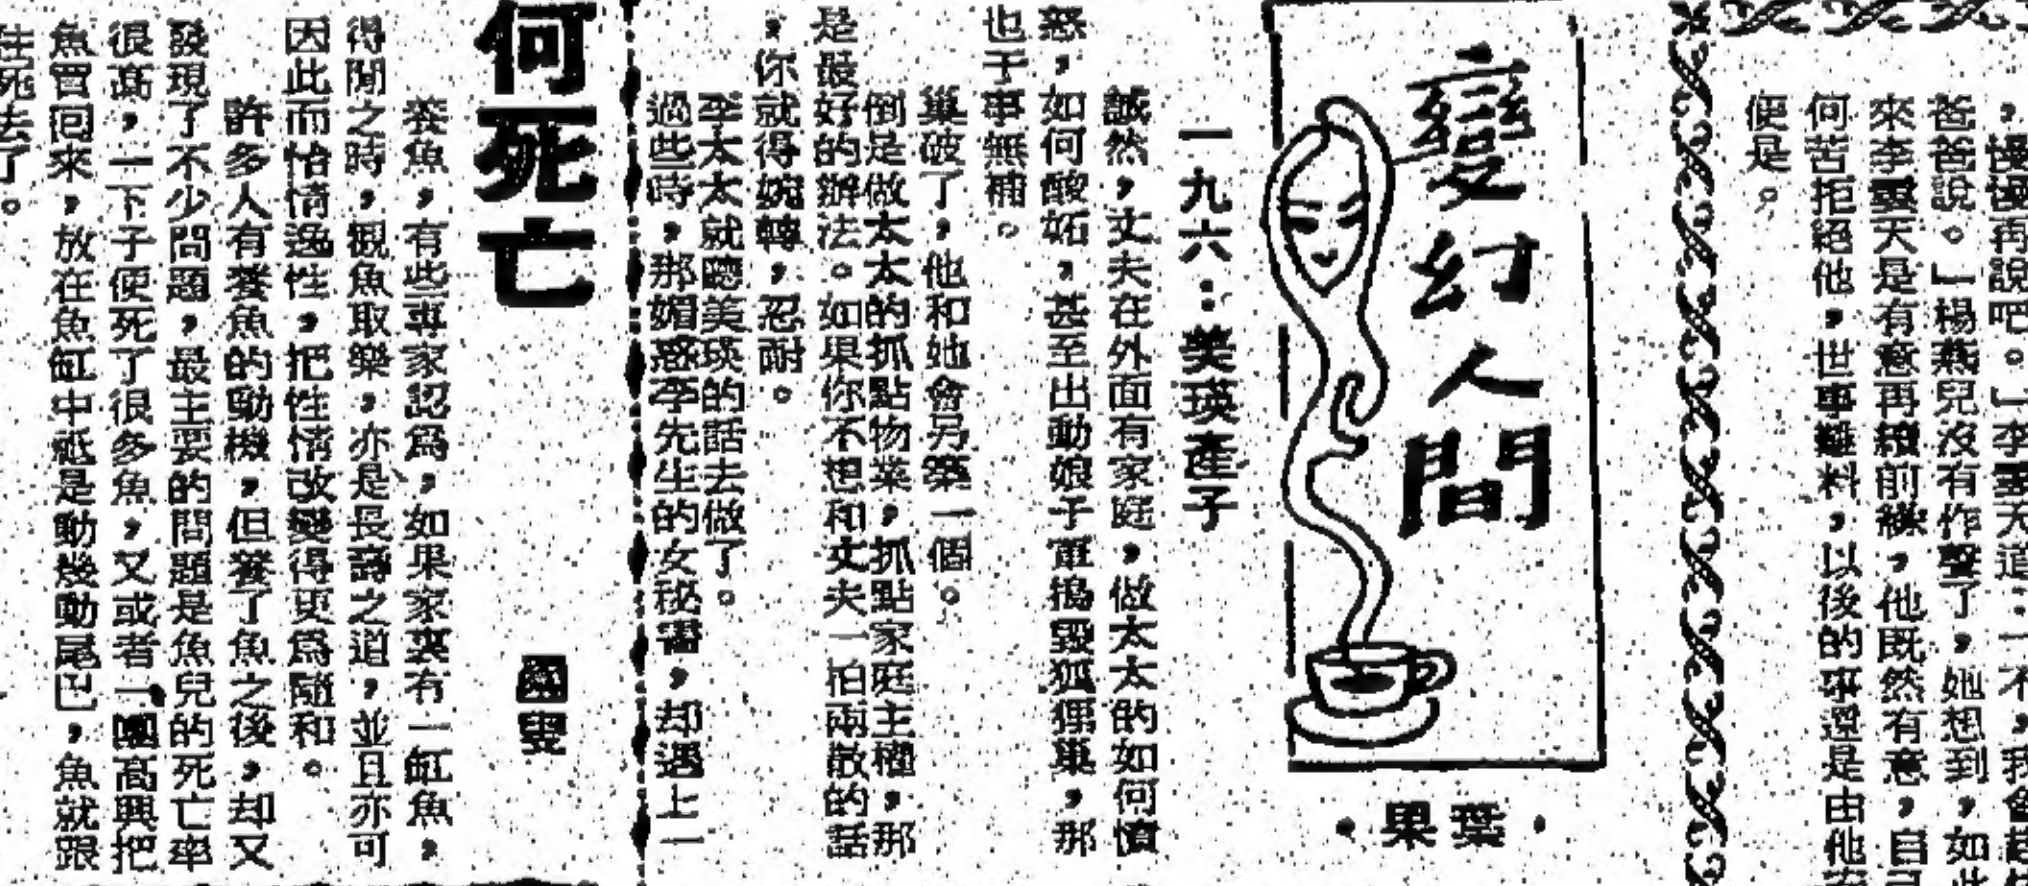 ，慢慢再說吧。」李雲天道：「不，我會
爸爸說。」楊燕兒沒有作聲了，她想到，如此
來李雲天是有意再續前緣，他既然有意，自己
何苦拒絕他，世事難料，以後的事還是由他
便是。
變幻人間
•葉果•
一九六：美瑛產子
誠然，丈夫在外面有家庭，做太太的如何憤
怒，如何酸妬，甚至出動娘子軍搗毀狐狸巢，那
也于事無補。
巢破了，他和她會另築一個。
倒是做太太的抓點物業，抓點家庭主權，那
是最好的辦法。如果你不想和丈夫一拍兩散的話
，你就得婉轉，忍耐。
李太太就聽美瑛的話去做了。
過些時，那媚惑李先生的女秘書，却遇上一
何死亡
叟
養魚，有些專家認爲，如果家裏有一缸魚，
得閒之時，觀魚取樂，亦是長壽之道，並且亦可
因此而怡情逸性，把性情改變得更爲隨和。
許多人有養魚的動機，但養了魚之後，却又
發現了不少問題，最主要的問題是魚兒的死亡率
很高，一下子便死了很多魚，又或者一團高興把
魚買回來，放在魚缸中祇是動幾動尾巴，魚就跟
死去了。